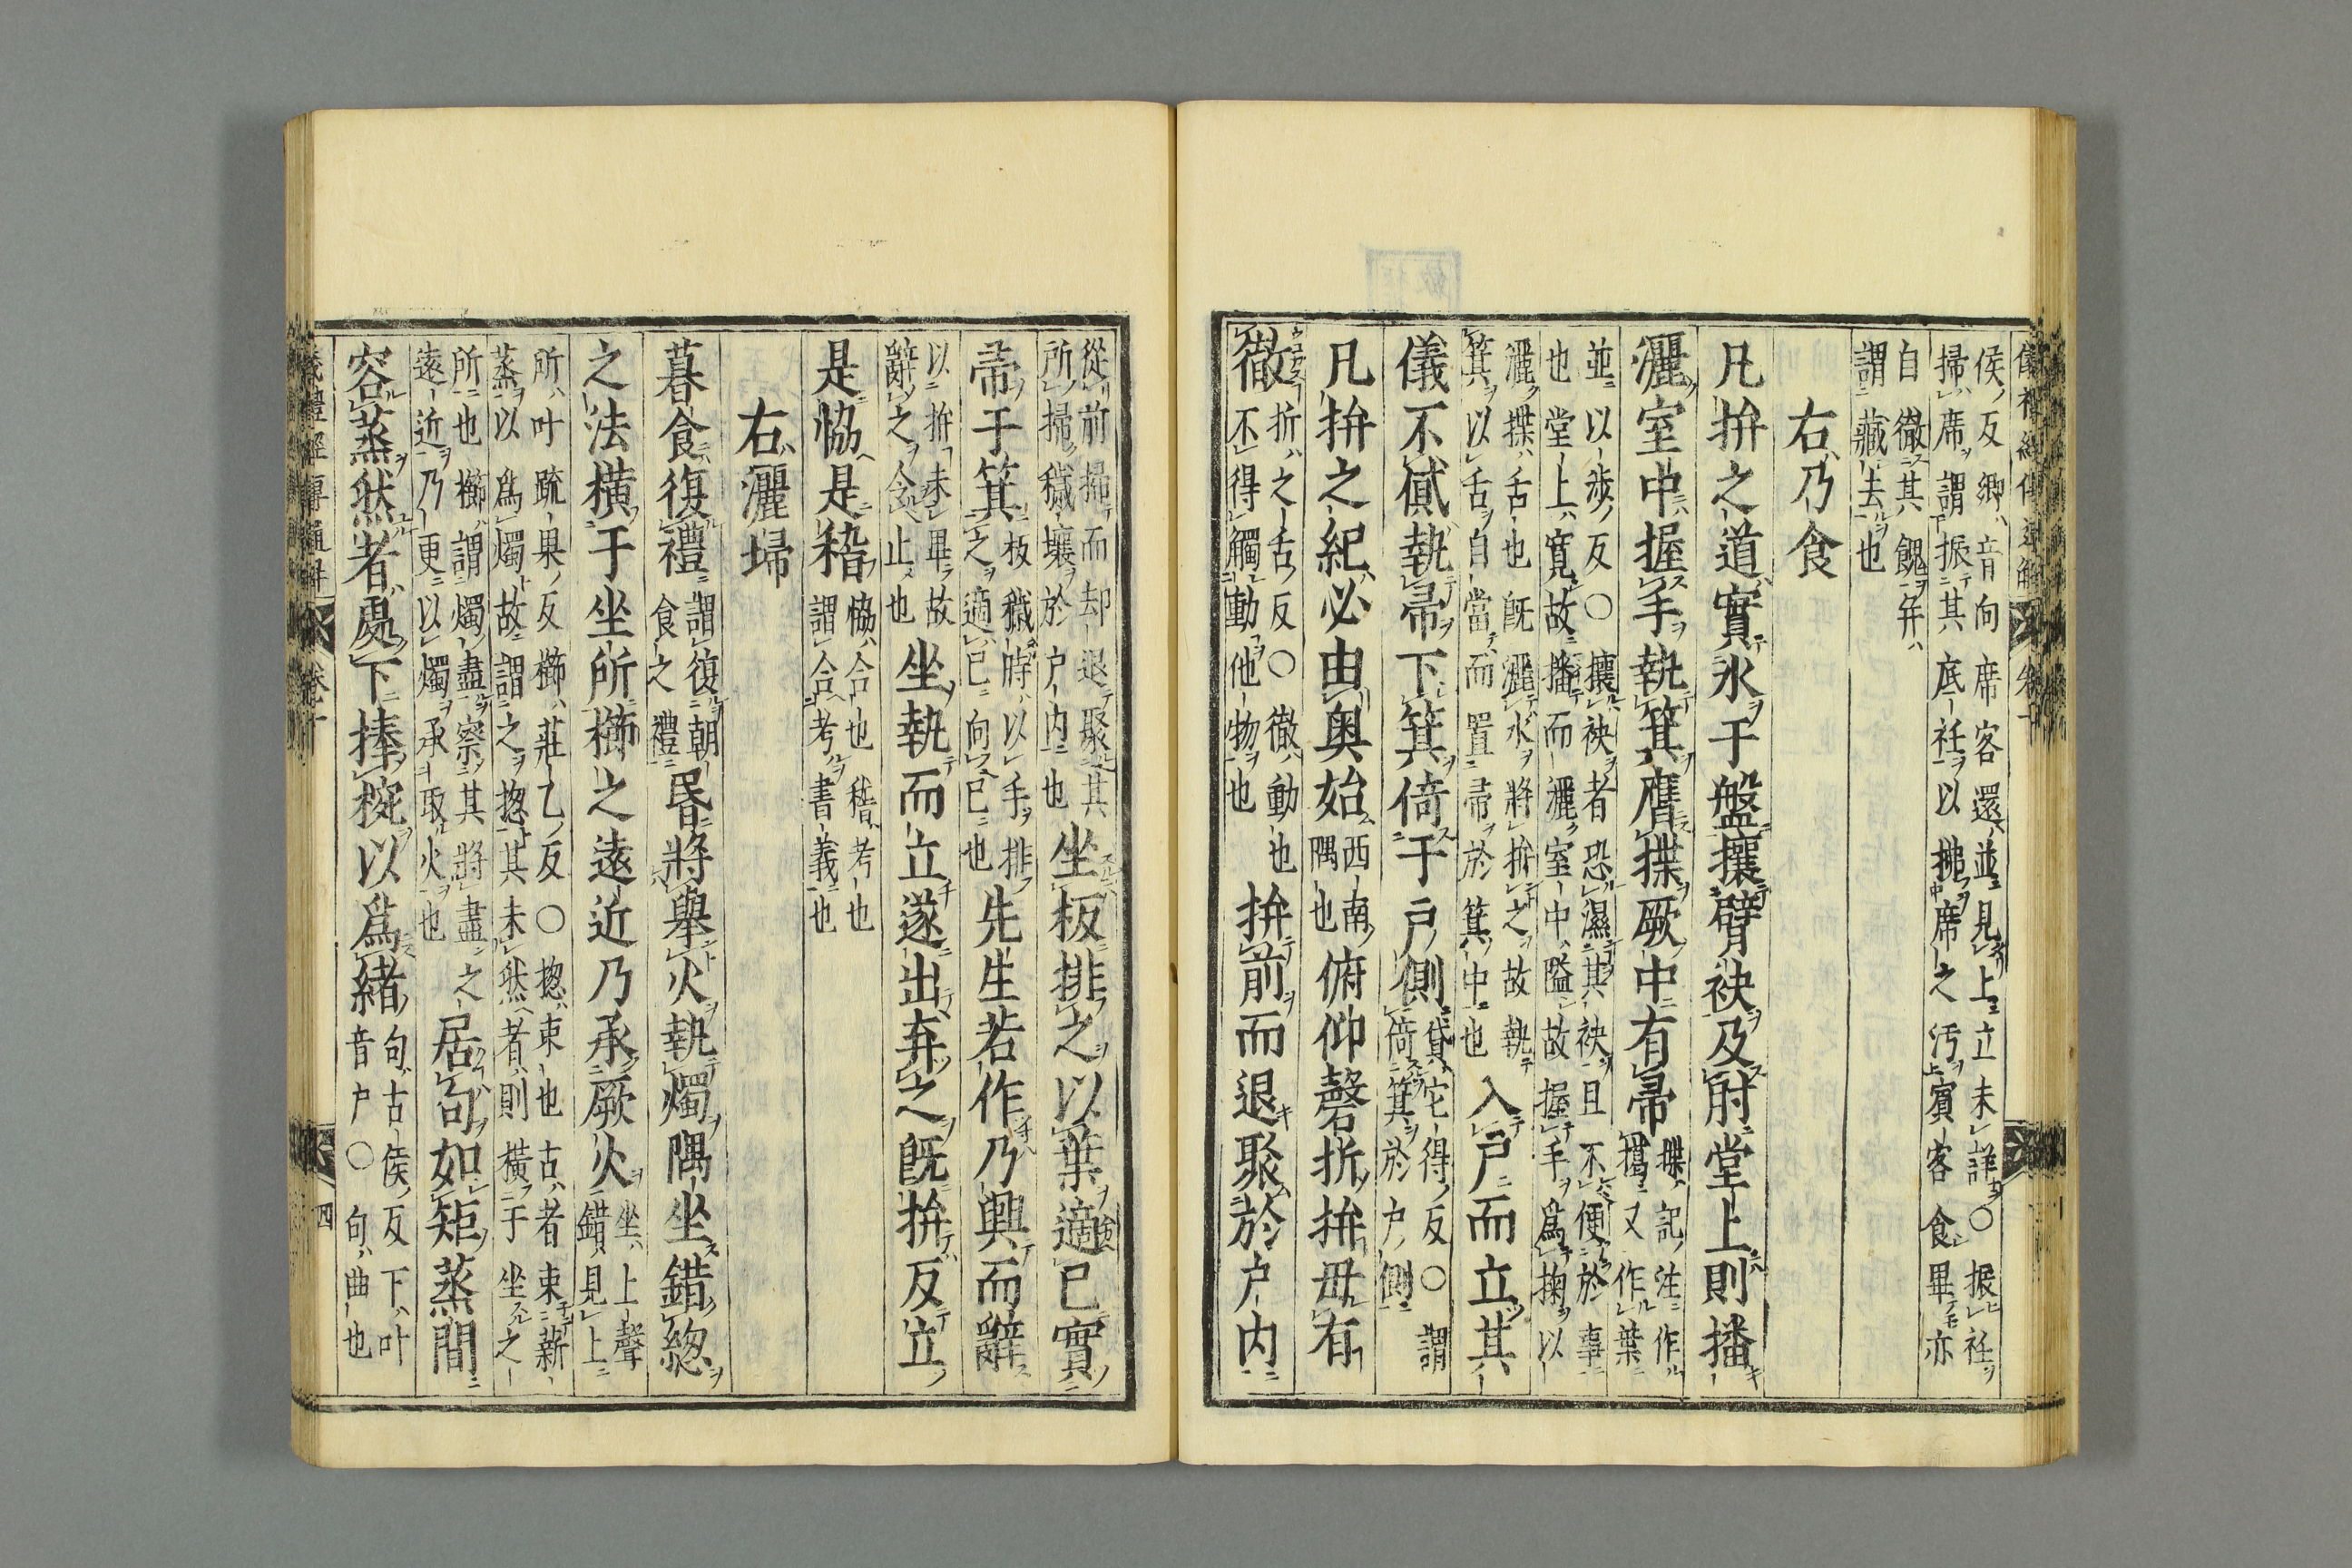 侯反鄉音向席客還並見上立未詳○振衽
掃席謂振其底衽以搥席之汚賓客食畢亦
自徹其餽弁
謂藏去也
右乃食
凡拚之道實水于盤攘臂袂及肘堂上則播
灑室中握手執箕膺揲厥中有帚
揲記注作
擖又作葉
並以涉反○攘袂者恐濕其袂且不便於事
也堂上寬故播而灑室中隘故握手爲掬以
灑揲舌也既灑水將拚之故執
箕以舌自當而置帚於箕中也
入戸而立其
儀不貣執帚下箕倚于戸側
貸它得反○謂
倚箕於户側
凡拚之紀必由奥始
西南
隅也
俯仰磬折拚毋有
徹
折之舌反○徹動也
不得觸動他物也
拚前而退聚於户内
從前掃而却退聚其
所掃穢壤於户内也
坐板排之以葉適已實
帚于箕
板穢時以手排
之適已向已也
先生若作乃興而辭
以拚未畢故
辭之令止也
坐執而立遂出弃之既拚反立
是恊是稽
恊合也稽考也
謂合考書義也
右灑埽
暮食復禮
謂復朝
食之禮
昏將舉火執燭隅坐錯緫
之法横于坐所櫛之遠近乃承厥火
坐上聲
錯見上
所叶疏果反櫛莊乙反○揔束也古者束薪
蒸以爲燭故謂之揔其未然者則横于坐之
所也櫛謂燭盡察其將盡之
遠近乃更以燭承取火也
居句如矩蒸間
容蒸然者處下捧椀以爲緒
句古侯反下叶
音户○句曲也
儀禮經傳通解
卷十
四